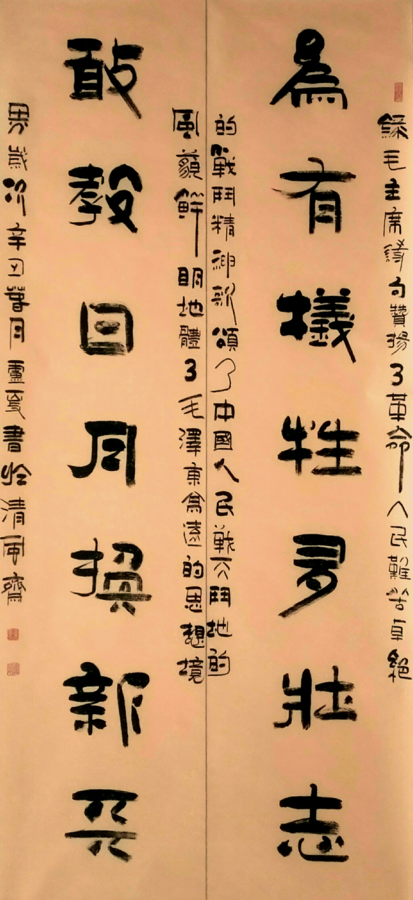 錄毛主席詩句贊揚了革命人民艱苦卓絕
為有犧牲多壯志
的戰鬥精神歌頌了中國人民戰天鬥地的
風貌鮮明地體了毛澤東高遠的思想境
敢教日月換新天
界歲次辛丑月夏書於清風齋